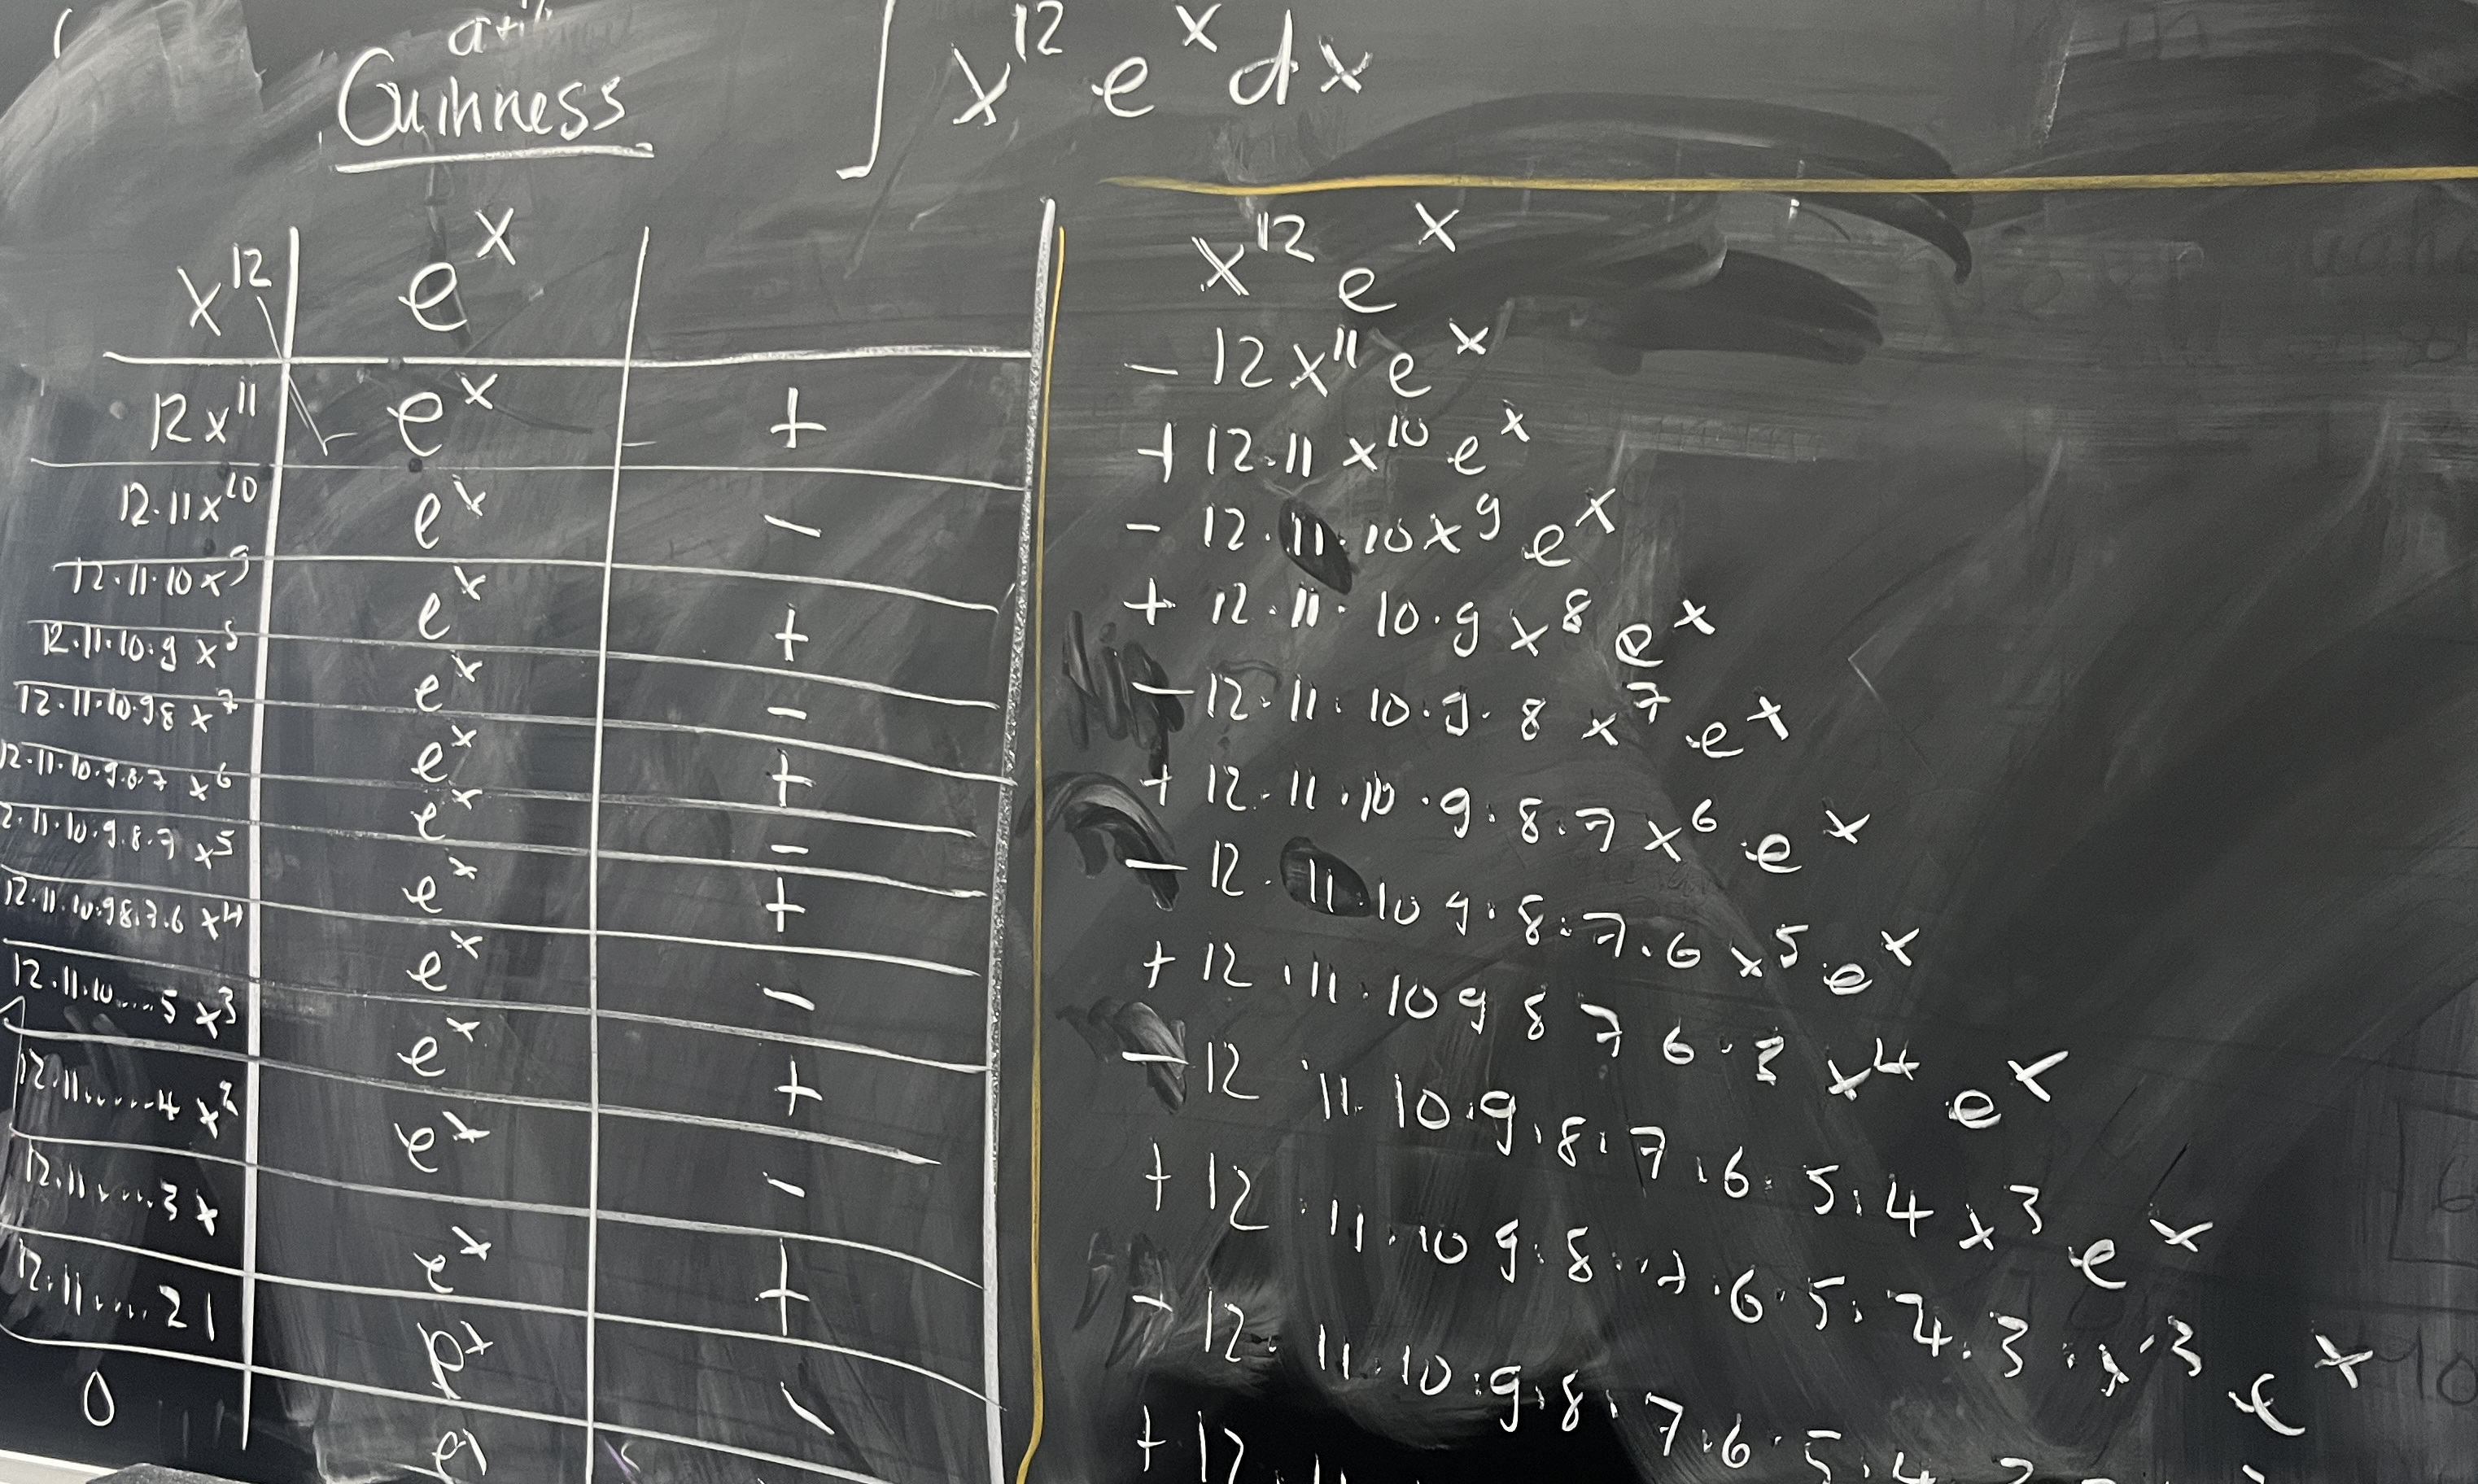 Guinness
∫ x¹² eˣ dx
x¹² | eˣ
12x¹¹ | eˣ | +
12·11x¹⁰ | eˣ | −
12·11·10x⁹ | eˣ | +
12·11·10·9 x⁵ | eˣ | −
12·11·10·98 x⁷ | eˣ | +
12·11·10·9·8·7 x⁶ | eˣ | −
2·11·10·9·8·7 x⁵ | eˣ | +
12·11·10·98·7·6 x⁴ | eˣ | −
12·11·10....5 x³ | eˣ | +
12·11......4 x² | eˣ | −
12·11.....3 x | eˣ | +
12·11....21 | eˣ | −
0
x¹² eˣ
− 12x¹¹ eˣ
+ 12·11 x¹⁰ eˣ
− 12·11·10x⁹ eˣ
+ 12·11·10·9 x⁸ eˣ
− 12·11·10·9·8 x⁷ eˣ
+ 12·11·10·9·8·7 x⁶ eˣ
− 12·11·10 9·8·7·6 x⁵ eˣ
+ 12·11·10 9 8 7 6·3 x⁴ eˣ
− 12 11·10·9·8·7·6·5·4 x³ eˣ
+ 12·11·10 9·8·7·6·5·4·3·x³ eˣ
− 12·11·10·9·8·7·6·5·4
+ 12